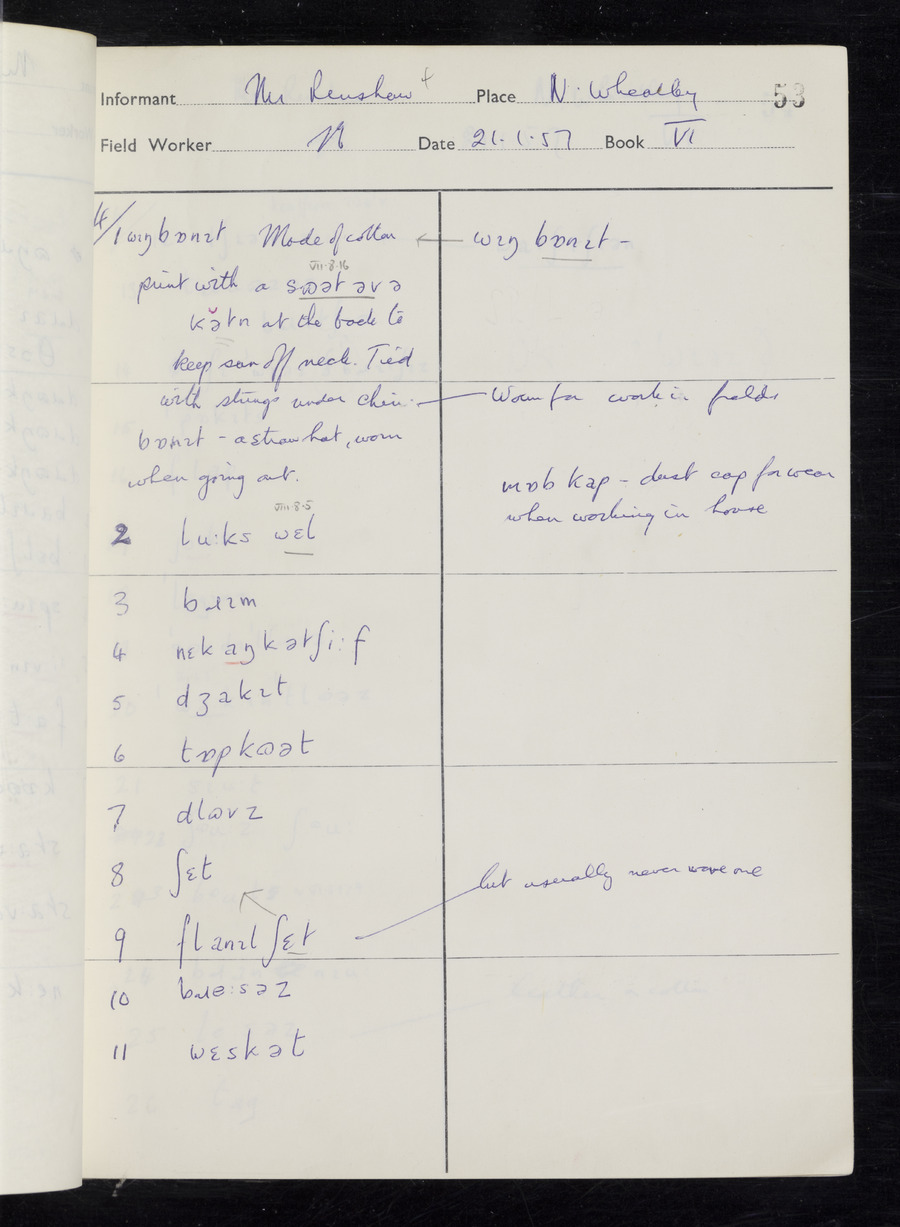 Informant Mr Renshaw + Place N. Wheatley 53
Field Worker Date 21.1.57 Book VI
14/1 wɪŋbɒnɪt Made of cotton
print with a sɒət əv ə
VII·8·16
kə̆tn at the back to
keep sun off neck. Tied
with strings under chin.
bɒnɪt – a straw hat, worn
when going out.
VIII·8·5
2 lu:ks wɛl
3 bɹɪm
4 nɛkaŋkətʃi:f
5 dʒakɪt
6 tɒpkɷət
7 dlɷvz
8 ʃɛt
9 flanɪl ʃɛt
10 bɹe:səz
11 wɛskət
wɪŋ bɒnɪt –
Worn for work in fields
mɒb kap – dust cap for wear
when working in house
but usually never wore one